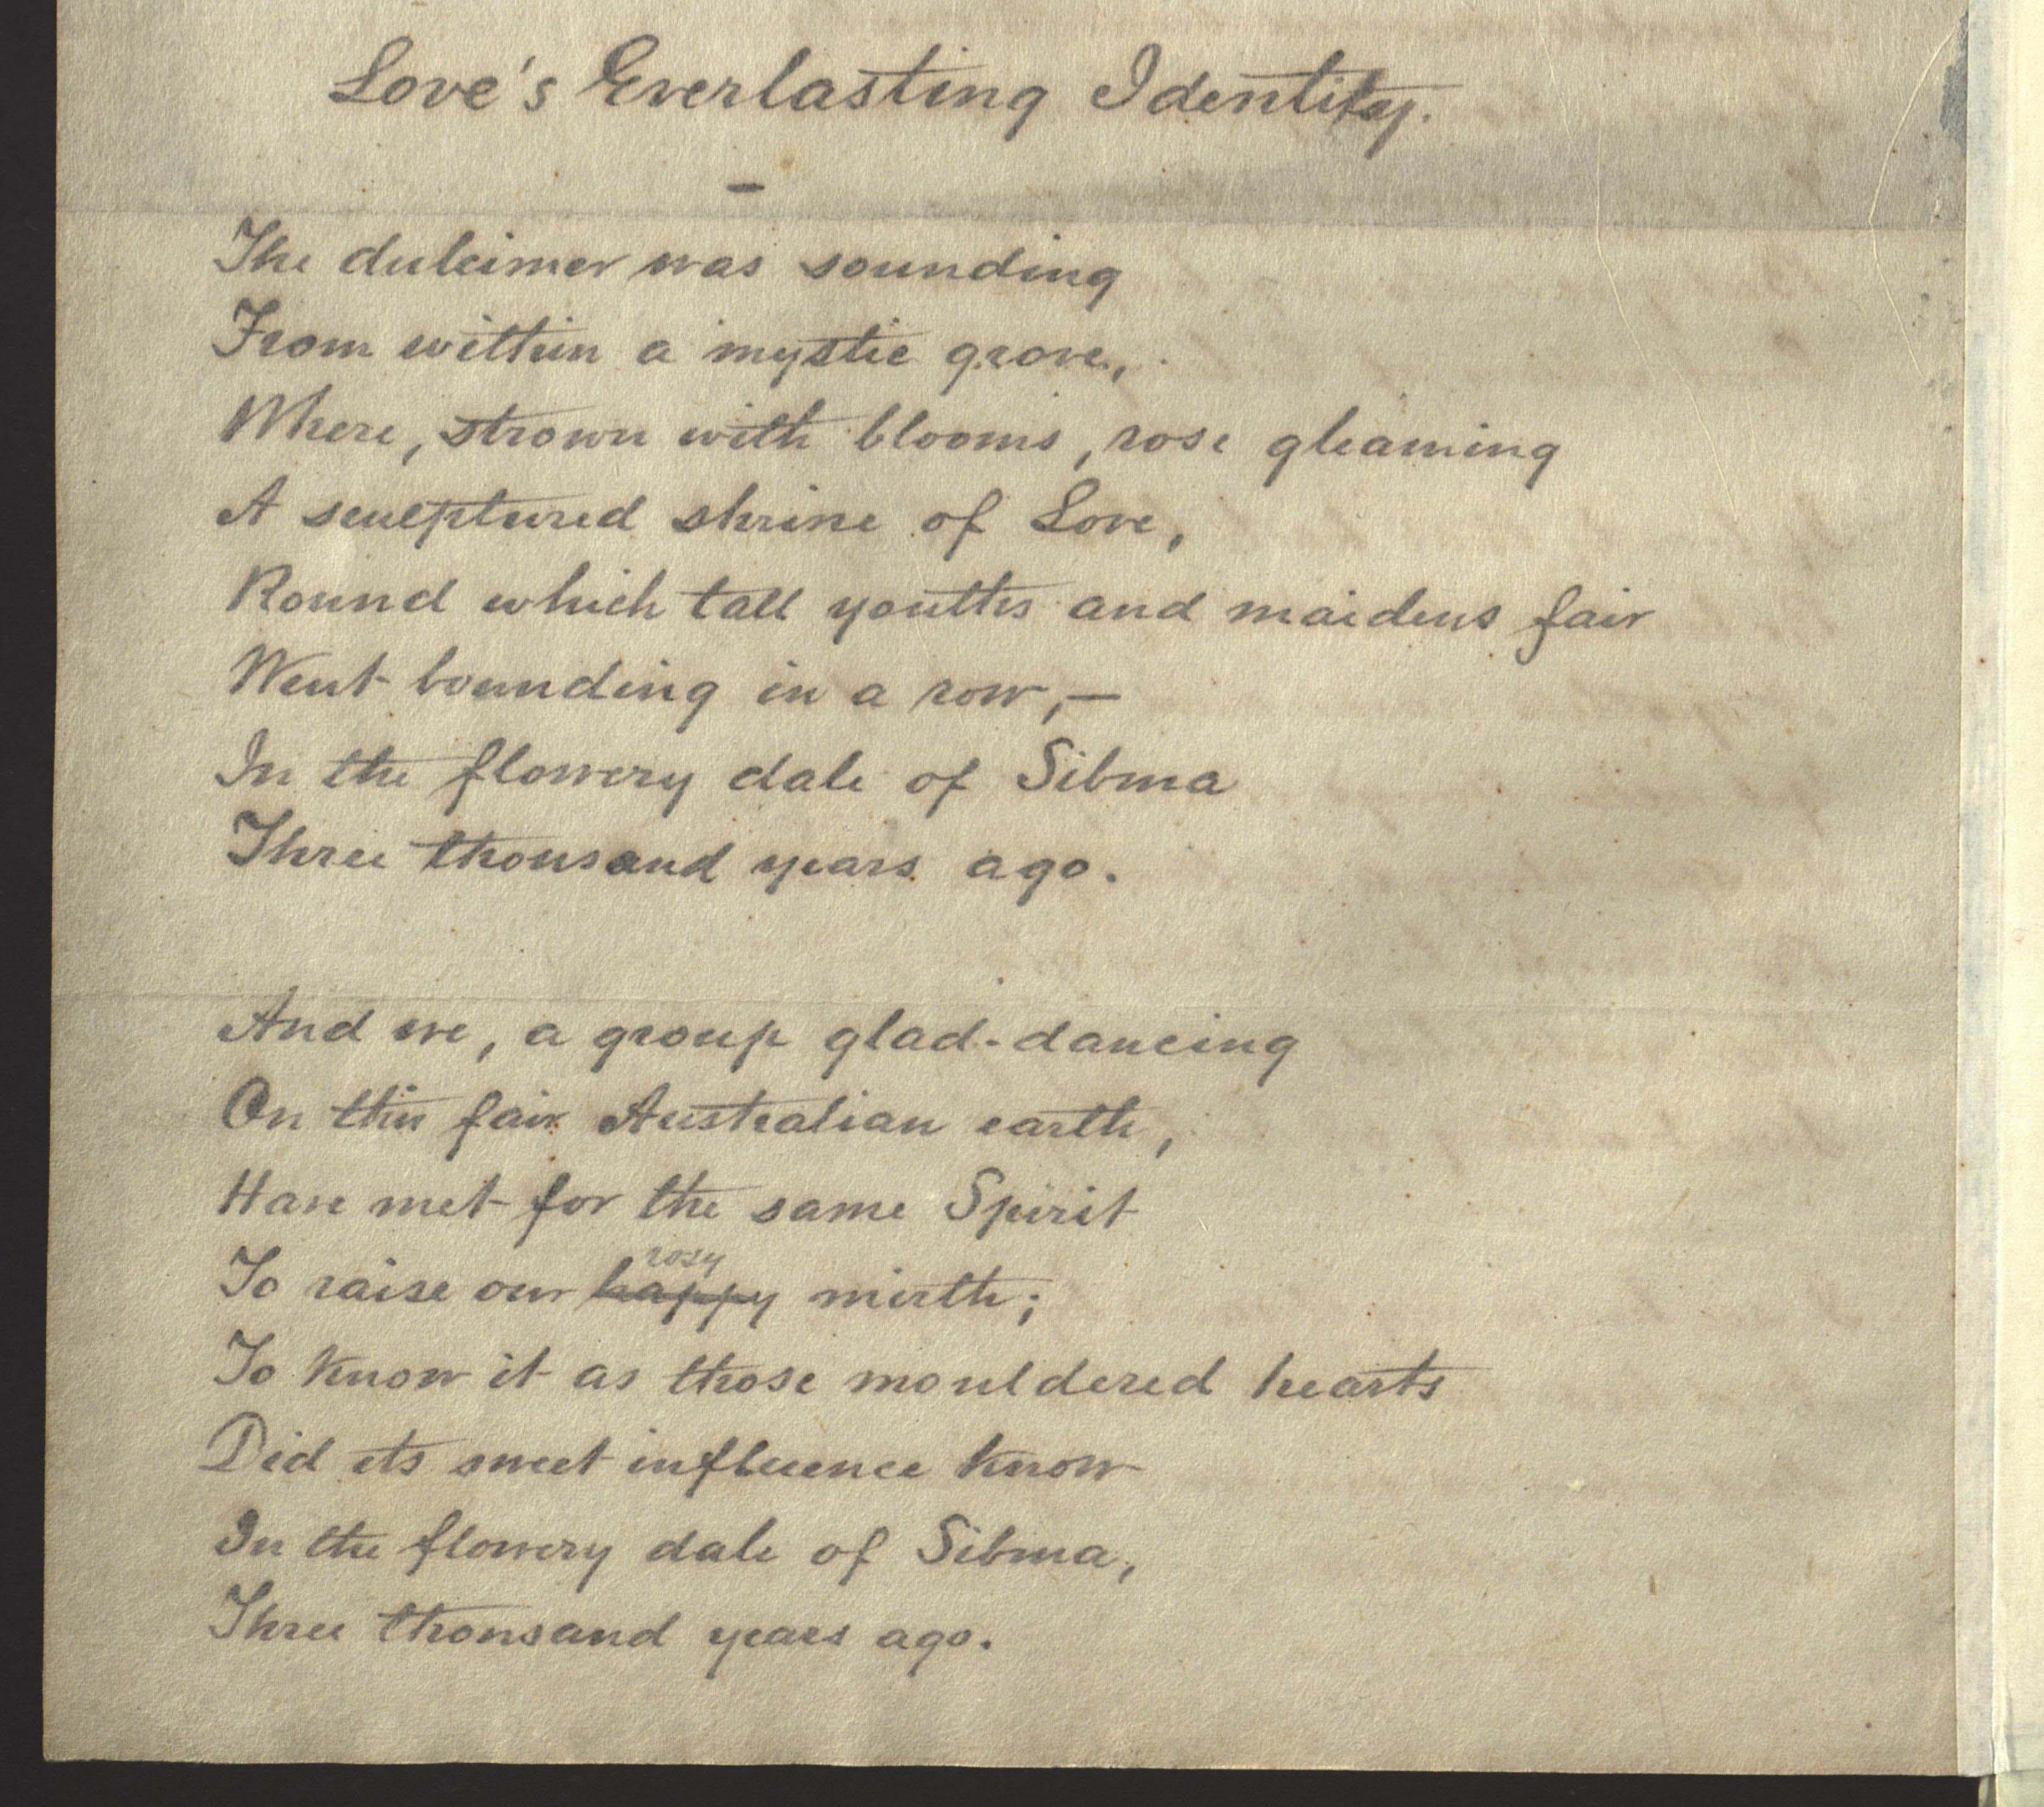 Love's Everlasting Identity.
—
The dulcimer was sounding
From within a mystic grove,
Where, strown with blooms, rose gleaming
A sculptured shrine of Love,
Round which tall youths and maidens fair
Went bounding in a row,—
In the flowery dale of Sibma
Three thousand years ago.
And we, a group glad-dancing
On this fair Australian earth,
Have met for the same Spirit
rosy
To raise our happy mirth;
To know it as those mouldered hearts
Did its sweet influence know
In the flowery dale of Sibma,
Three thousand years ago.